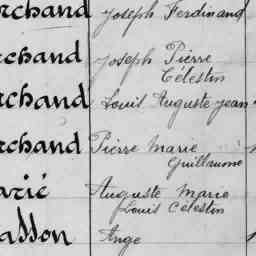 rchand Joseph Ferdinand
rchand Joseph Pierre
Célestin
rchand Louis Auguste Jean
rchand Pierre Marie
Guillaume
arié Auguste Marie
Louis Célestin
asson Ange